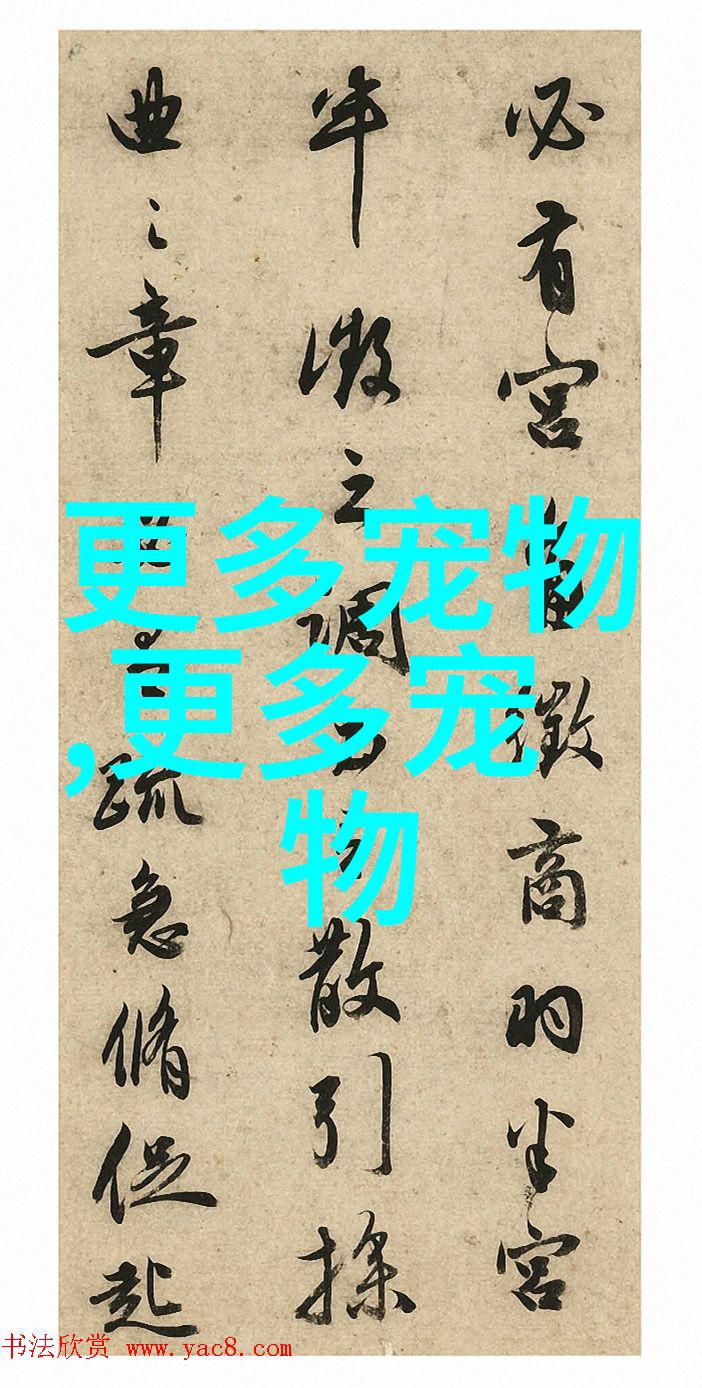 必有宮徵商羽半宮
半徵之調散引操
曲之章疏急脩促起
更多宠物
,更多宠
物
书法欣赏 www.yac8.com